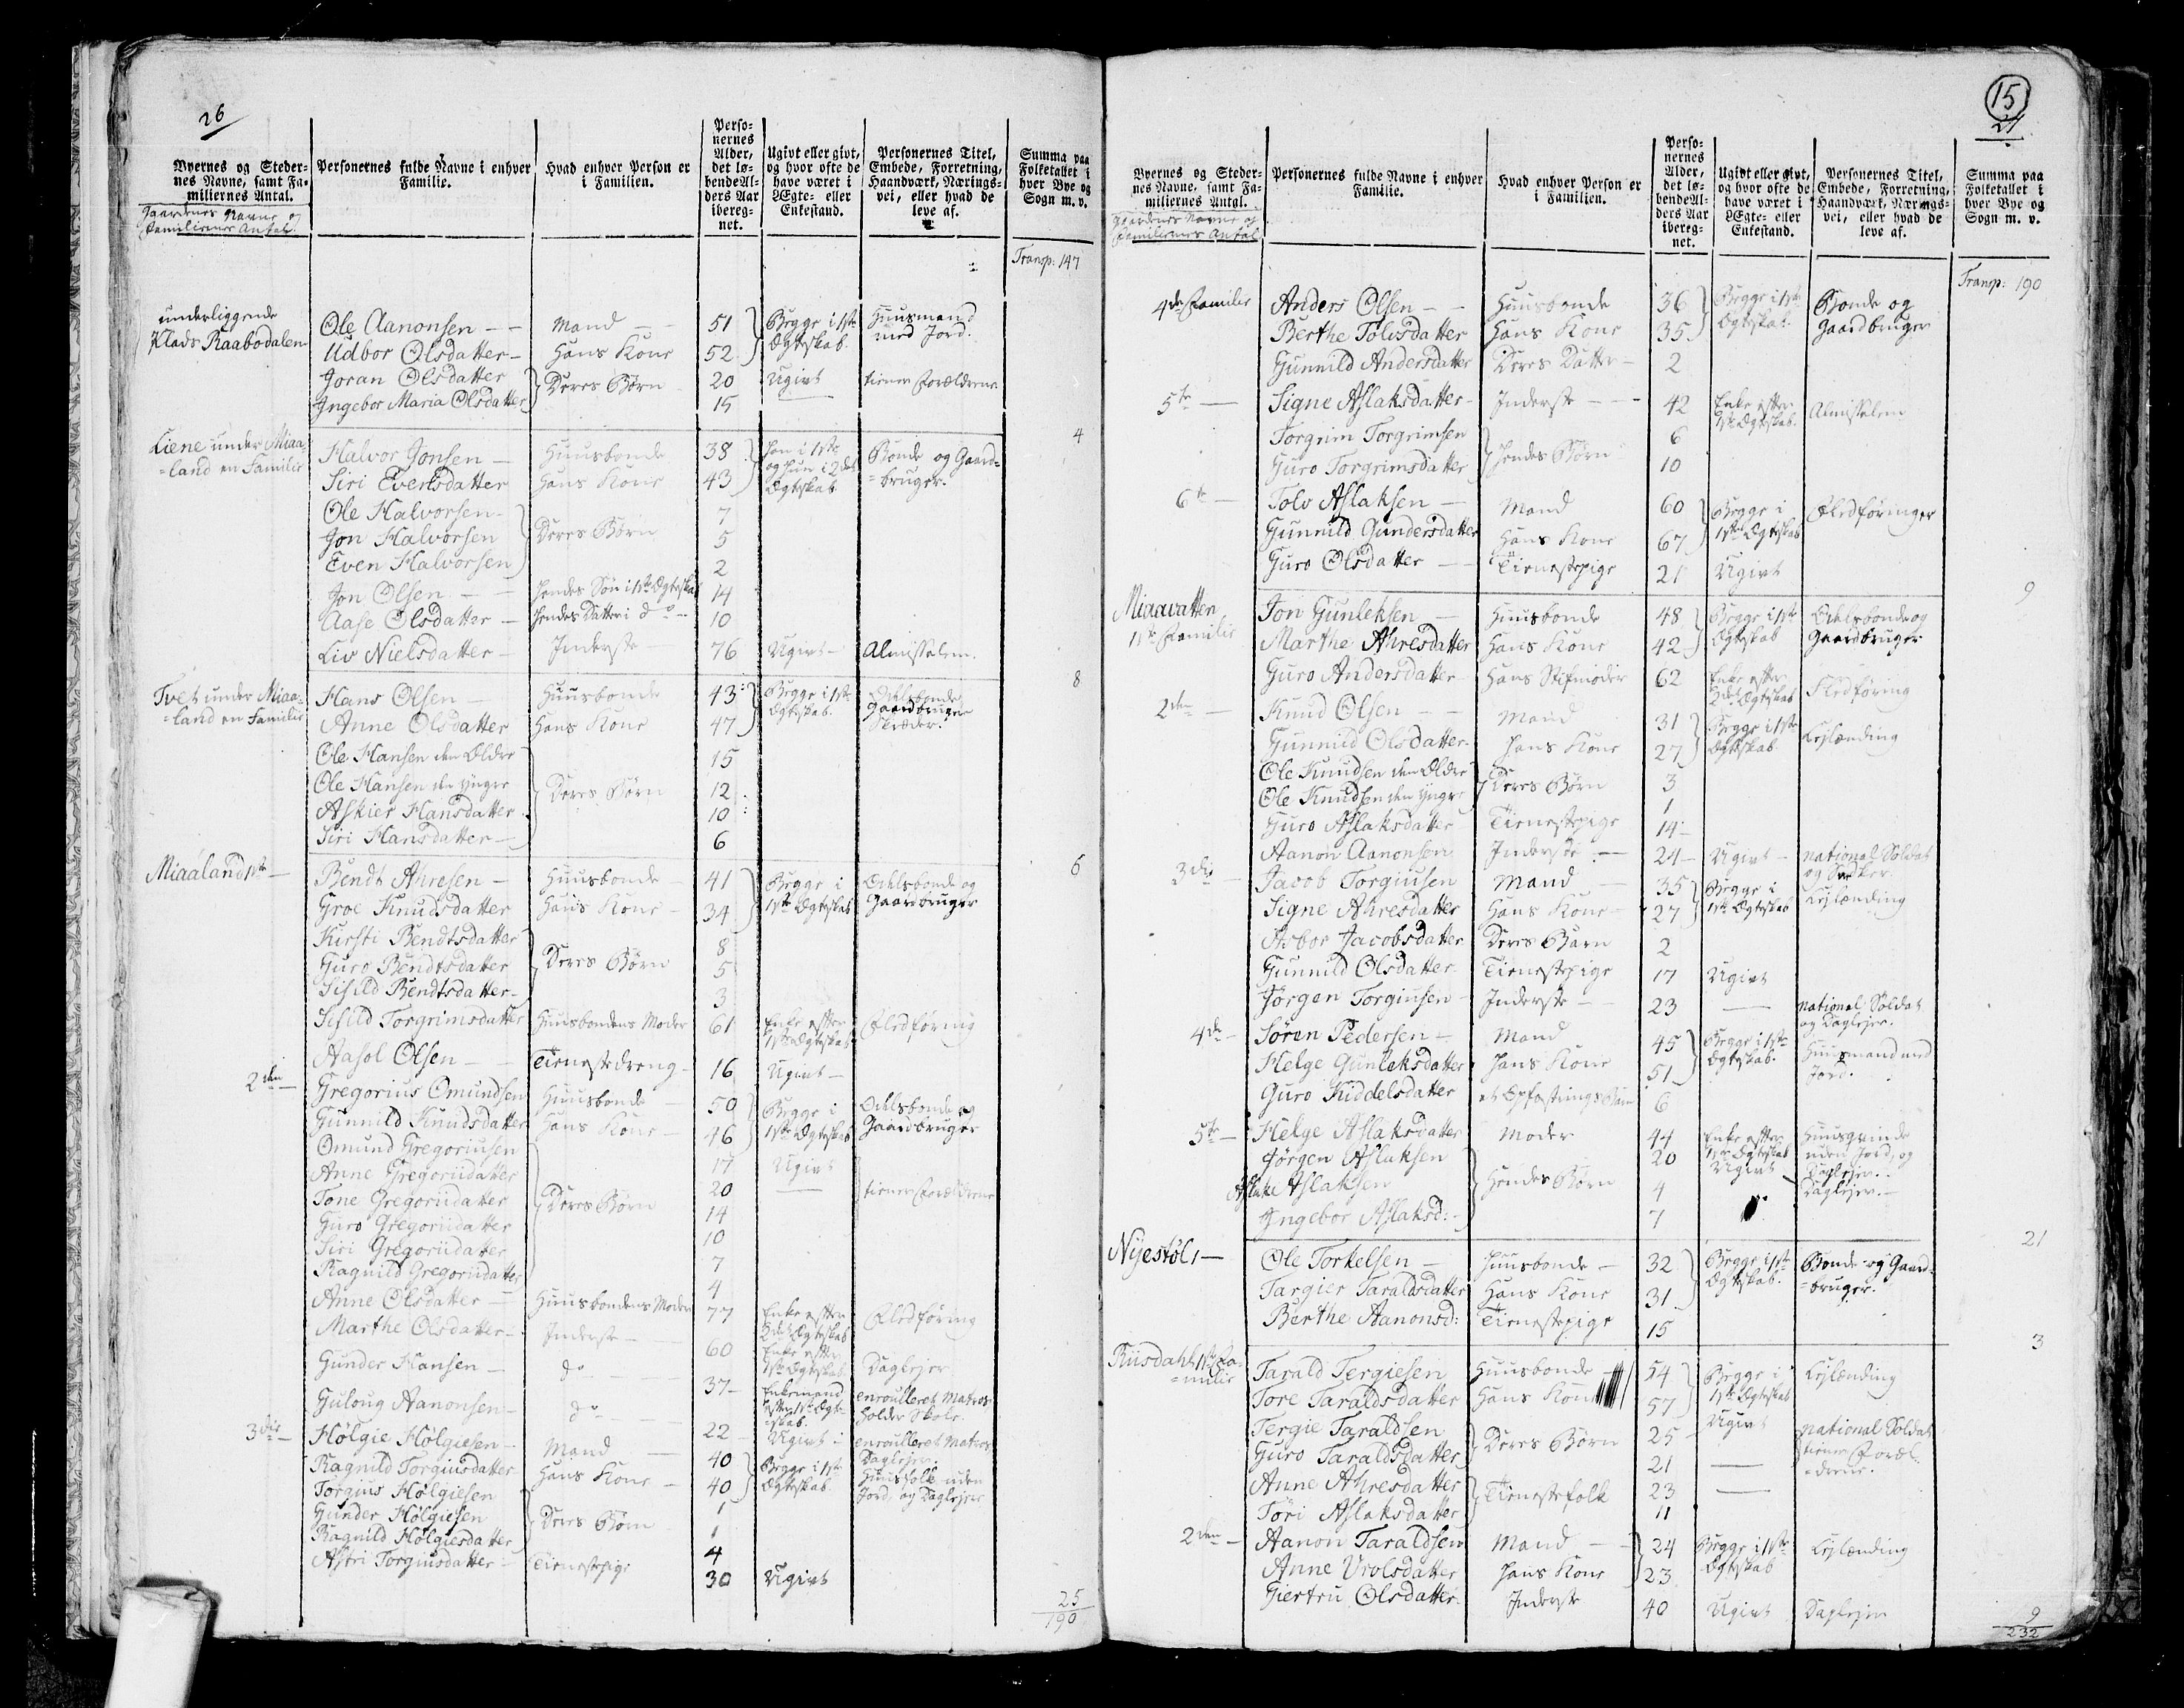 26
Byernes og Steder-
nes Navne, samt Fa-
miliernes Antal.
Gaardenes Navne og
Familiernes Antal.
Personernes fulde Navne i enhver
Familie.
Hvad enhver Person er
i Familien.
Perso-
nernes
Alder,
det lø-
bende Al-
ders Aar
ibereg-
net.
Ugivt eller givt,
og hvor ofte de
have været i
Ægte- eller
Enkestand.
Personernes Titel,
Embede, Forretning,
Haandværk, Nærings-
vei, eller hvad de
leve af.
Summa paa
Folketallet i
hver Bye og
Sogn m. v.
Transp: 147
underliggende
Plads Raabodalen
Ole Aanonsen — Mand — 51 Begge i 1ste Ægteskab Huusmand med Jord.
Udbor Olsdatter — Hans Kone 52
Joran Olsdatter Deres Børn 20 Ugivt tiener Forældrene
Ingebor Maria Olsdatter 15
4
Liene under Miaa-
=land en Familie
Halvor Jonsen — Huusbonde 38 Han i 1ste og hun i 2det Ægteskab Bonde og Gaard-
=bruger.
Siri Evensdatter Hans Kone 43
Ole Halvorsen Deres Børn 7
Jon Halvorsen 5
Even Halvorsen 2
Jon Olsen — Hendes Søn i 1ste Ægteskab 14
Aase Olsdatter — Hendes Datter i do 10
Liv Nielsdatter — Inderste — 76 Ugivt — Almisselem.
8
Tvet under Miaa-
=land en Familie
Hans Olsen — Huusbonde 43 Begge i 1ste Ægteskab. Odelsbonde Gaardbruger Skræder.
Anne Olsdatter Hans Kone 47
Ole Hansen den Ældre Deres Børn 15
Ole Hansen den Yngre 12
Askier Hansdatter 10
Siri Hansdatter — 6
6
Miaaland 1ste —
Bendt Ahresen — Huusbonde — 41 Begge i 1ste Ægteskab Odelsbonde og Gaardbruger
Groe Knudsdatter Hans Kone — 34
Kirsti Bendtsdatter Deres Børn 8
Guro Bendtsdatter 5
Sisild Bendtsdatter — 3
Sisild Torgrimsdatter Huusbondens Moder 61 Enke efter 1ste Ægteskab Fledføring
Aasol Olsen — Tienestedreng — 16 Ugivt —
2den —
Gregorius Omundsen Huusbonde — 50 Begge i 1ste Ægteskab Odelsbonde og Gaardbruger
Gunnild Knudsdatter Hans Kone — 46
Omund Gregoriusen Deres Børn 17 Ugivt tiener Forældrene
Anne Gregoriidatter 20 —
Tone Gregoriidatter 14
Guro Gregoriidatter 10
Siri Gregoriidatter 7
Ragnild Gregoriidatter 4
Anne Olsdatter — Huusbondens Moder 77 Enke efter 2det Ægteskab Fledføring
Marthe Olsdatter — Inderste — 60 Enke efter 1ste Ægteskab Daglejer
Gunder Hansen — do — 37 Enkemand efter 1ste Ægte-
skab. enroulleret Matros holder Skole.
Guloug Aanonsen — do — 22 Ugivt — enroulleret Matros Daglejer.
3die —
Hølgie Hølgiesen — Mand — 40 Begge i 1ste Ægteskab Huusfolk uden Jord, og Daglejer
Ragnild Torgiusdatter Hans Kone — 40
Torgius Hølgiesen Deres Børn 1
Gunder Hølgiesen 1
Ragnild Hølgiesdatter 4
Astri Torgiusdatter — Tienestepige 30 Ugivt
25
190
15
27
Byernes og Steder-
nes Navne, samt Fa-
miliernes Antal.
Gaardenes Navne og
Familiernes Antal
Personernes fulde Navne i enhver
Familie.
Hvad enhver Person er
i Familien.
Perso-
nernes
Alder,
det lø-
bende Al-
ders Aar
ibereg-
net.
Ugivt eller givt,
og hvor ofte de
have været i
Ægte- eller
Enkestand.
Personernes Titel,
Embede, Forretning,
Haandværk, Nærings-
vei, eller hvad de
leve af.
Summa paa
Folketallet i
hver Bye og
Sogn m. v.
Transp: 190
4de Familie
Anders Olsen — Huusbonde 36 Begge i 1ste Ægteskab. Bonde og Gaardbruger
Berthe Tolvsdatter Hans Kone 35
Gunnild Andersdatter Deres Datter — 2
5te —
Signe Aslaksdatter — Inderste — 42 Enke efter 1ste Ægteskab. Almisselem
Torgrim Torgrimsen Hendes Børn 6
Guro Torgrimsdatter 10
6te —
Tolv Aslaksen — Mand 60 Begge i 1ste Ægteskab Fledføringer
Gunnild Gundersdatter Hans Kone 67
Guro Olsdatter — Tienestepige 21 Ugivt
9
Miaavatten
1ste Familie
Jon Gunleksen — Huusbonde 48 Begge i 1ste Ægteskab Odelsbonde og Gaardbruger
Marthe Ahresdatter Hans Kone 42
Guro Andersdatter Hans Stifmoder 62 Enke efter 2det Ægteskab Fledføring
2den —
Knud Olsen — Mand 31 Begge i 1ste Ægteskab Lejlænding
Gunnild Olsdatter Hans Kone 27
Ole Knudsen den Ældre Deres Børn 3
Ole Knudsen den Yngre 1
Guro Aslaksdatter Tienestepige 14
Aanon Aanonsen Inderste — 24 — Ugivt — national Soldat og
3die —
Jacob Torgiusen Mand — 35 Begge i 1ste Ægteskab Lejlænding
Signe Ahresdatter Hans Kone — 27
Asbor Jacobsdatter Deres Barn 2
Gunnild Olsdatter Tienestepige 17 Ugivt
Jørgen Torgiusen — Inderste — 23 — national Soldat og Daglejer.
4de —
Søren Pedersen — Mand 45 Begge i 1ste Ægteskab. Huusmand med Jord.
Helge Gunleksdatter Hans Kone 51
Guro Kiddelsdatter et Opfostrings Barn 6
5te —
Helge Aslaksdatter Moder 44 Enke efter 1ste Ægteskab Huusqvinde uden Jord, og Daglejer.
Jørgen Aslaksen Hendes Børn 20 Ugivt Daglejer. —
Aslak Aslaksen 4
Ingebor Aslaksd: — 7
21
Nyestøl 1 —
Ole Torkelsen — Huusbonde — 32 Begge i 1ste Ægteskab. Bonde og Gaard-
=bruger.
Targier Taraldsdatter Hans Kone 31
Berthe Aanonsd: Tienestepige 15
3
Riisdahl 1ste Fa-
=milie
Tarald Tergiesen Huusbonde 54 Begge i 1ste Ægteskab Lejlænding
Tore Taraldsdatter Hans Kone 57
Tergie Taraldsen Deres Børn 25 Ugivt national Soldat tiener Foræl-
drene.
Guro Taraldsdatter 21 —
Anne Ahresdatter Tienestefolk 23 —
Tøri Aslaksdatter 11
2den —
Aanon Taraldsen Mand — 24 Begge i 1ste Ægteskab Lejlænding
Anne Vrolsdatter Hans Kone 23
Giertru Olsdatter Inderste 40 Ugivt Daglejer
9
232